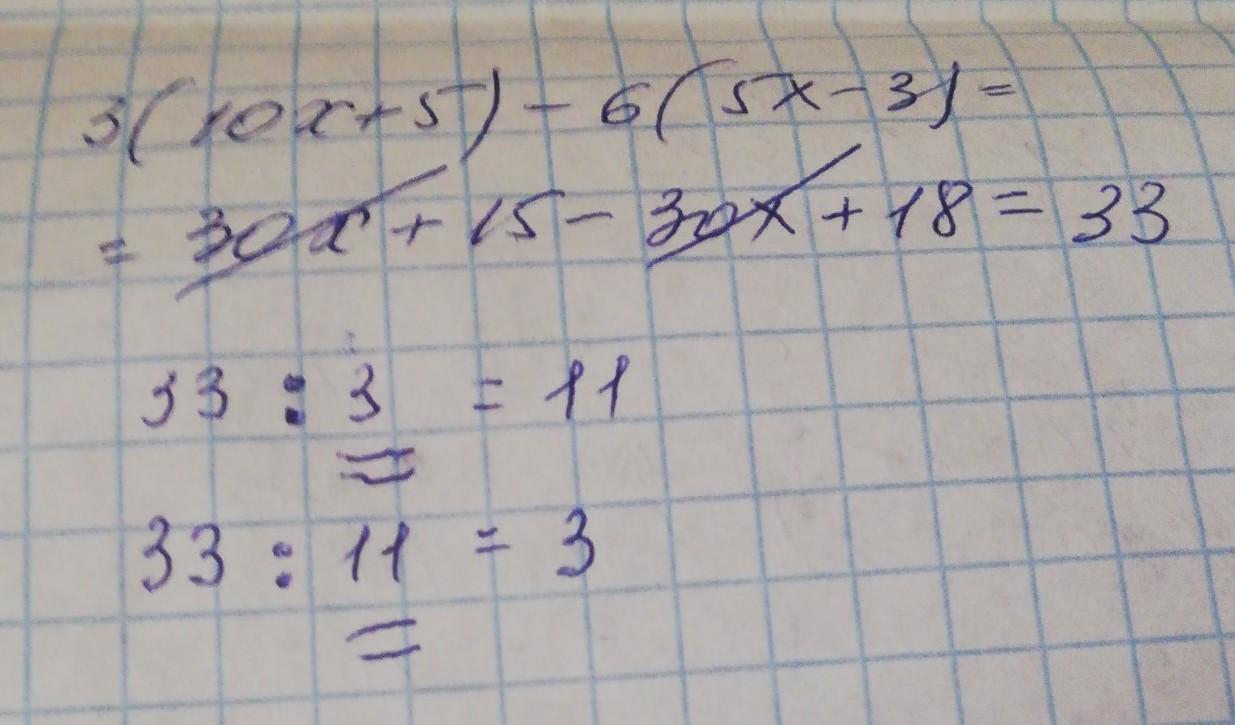 3(10x+5)-6(5x-3)=
=30x+15-30x+18=33
33:3=11
33:11=3